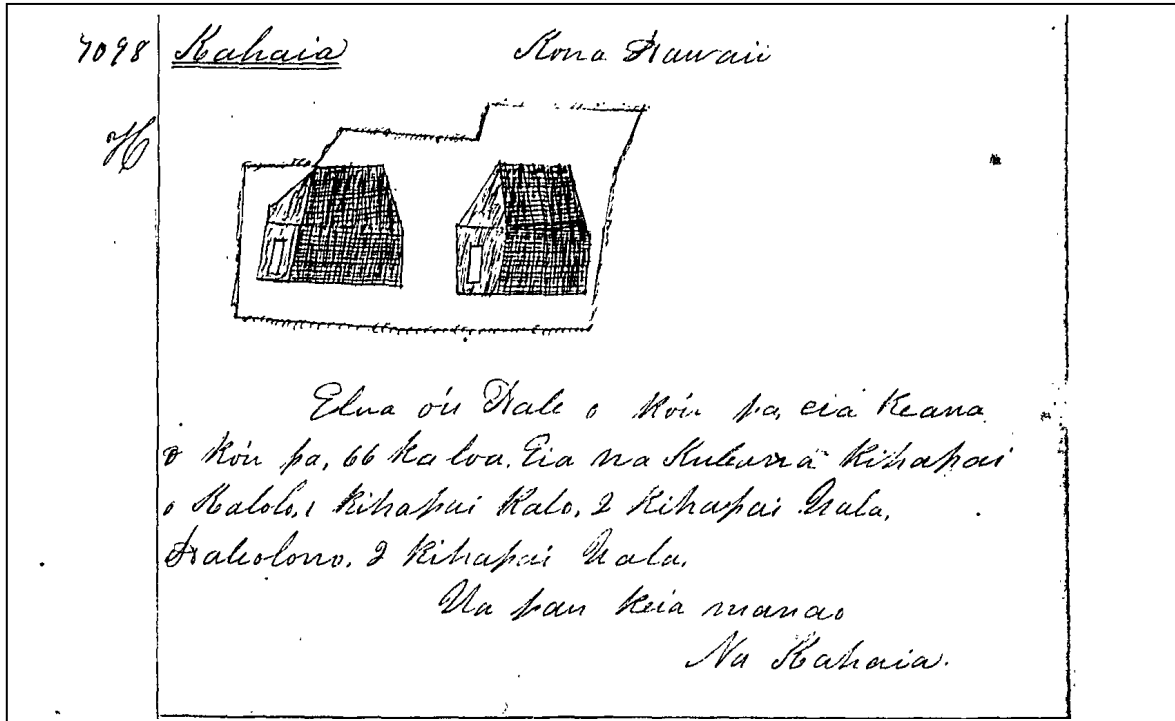 7098 Kahaia Kona Hawaii
H
Elua o'u Hale o ko'u pa, eia Keana
o ko'u pa, 66 ka loa. Eia na Kuleana Kihapai
o Kalolo, 1 Kihapai Kalo, 2 Kihapai Uala,
Haleolono. 2 Kihapai Uala.
Ua pau keia manao
Na Kahaia.